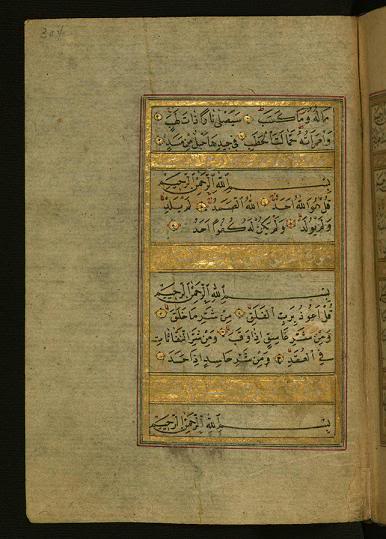 ماله وما كسب سيصلى نارا ذات لهب
وامرأته حمالة الحطب في جيدها حبل من مسد
بسم الله الرحمن الرحيم
قل هو الله أحد الله الصمد لم يلد
ولم يولد ولم يكن له كفوا أحد
بسم الله الرحمن الرحيم
قل أعوذ برب الفلق من شر ما خلق
ومن شر غاسق إذا وقب ومن شر النفاثات
في العقد ومن شر حاسد إذا حسد
بسم الله الرحمن الرحيم